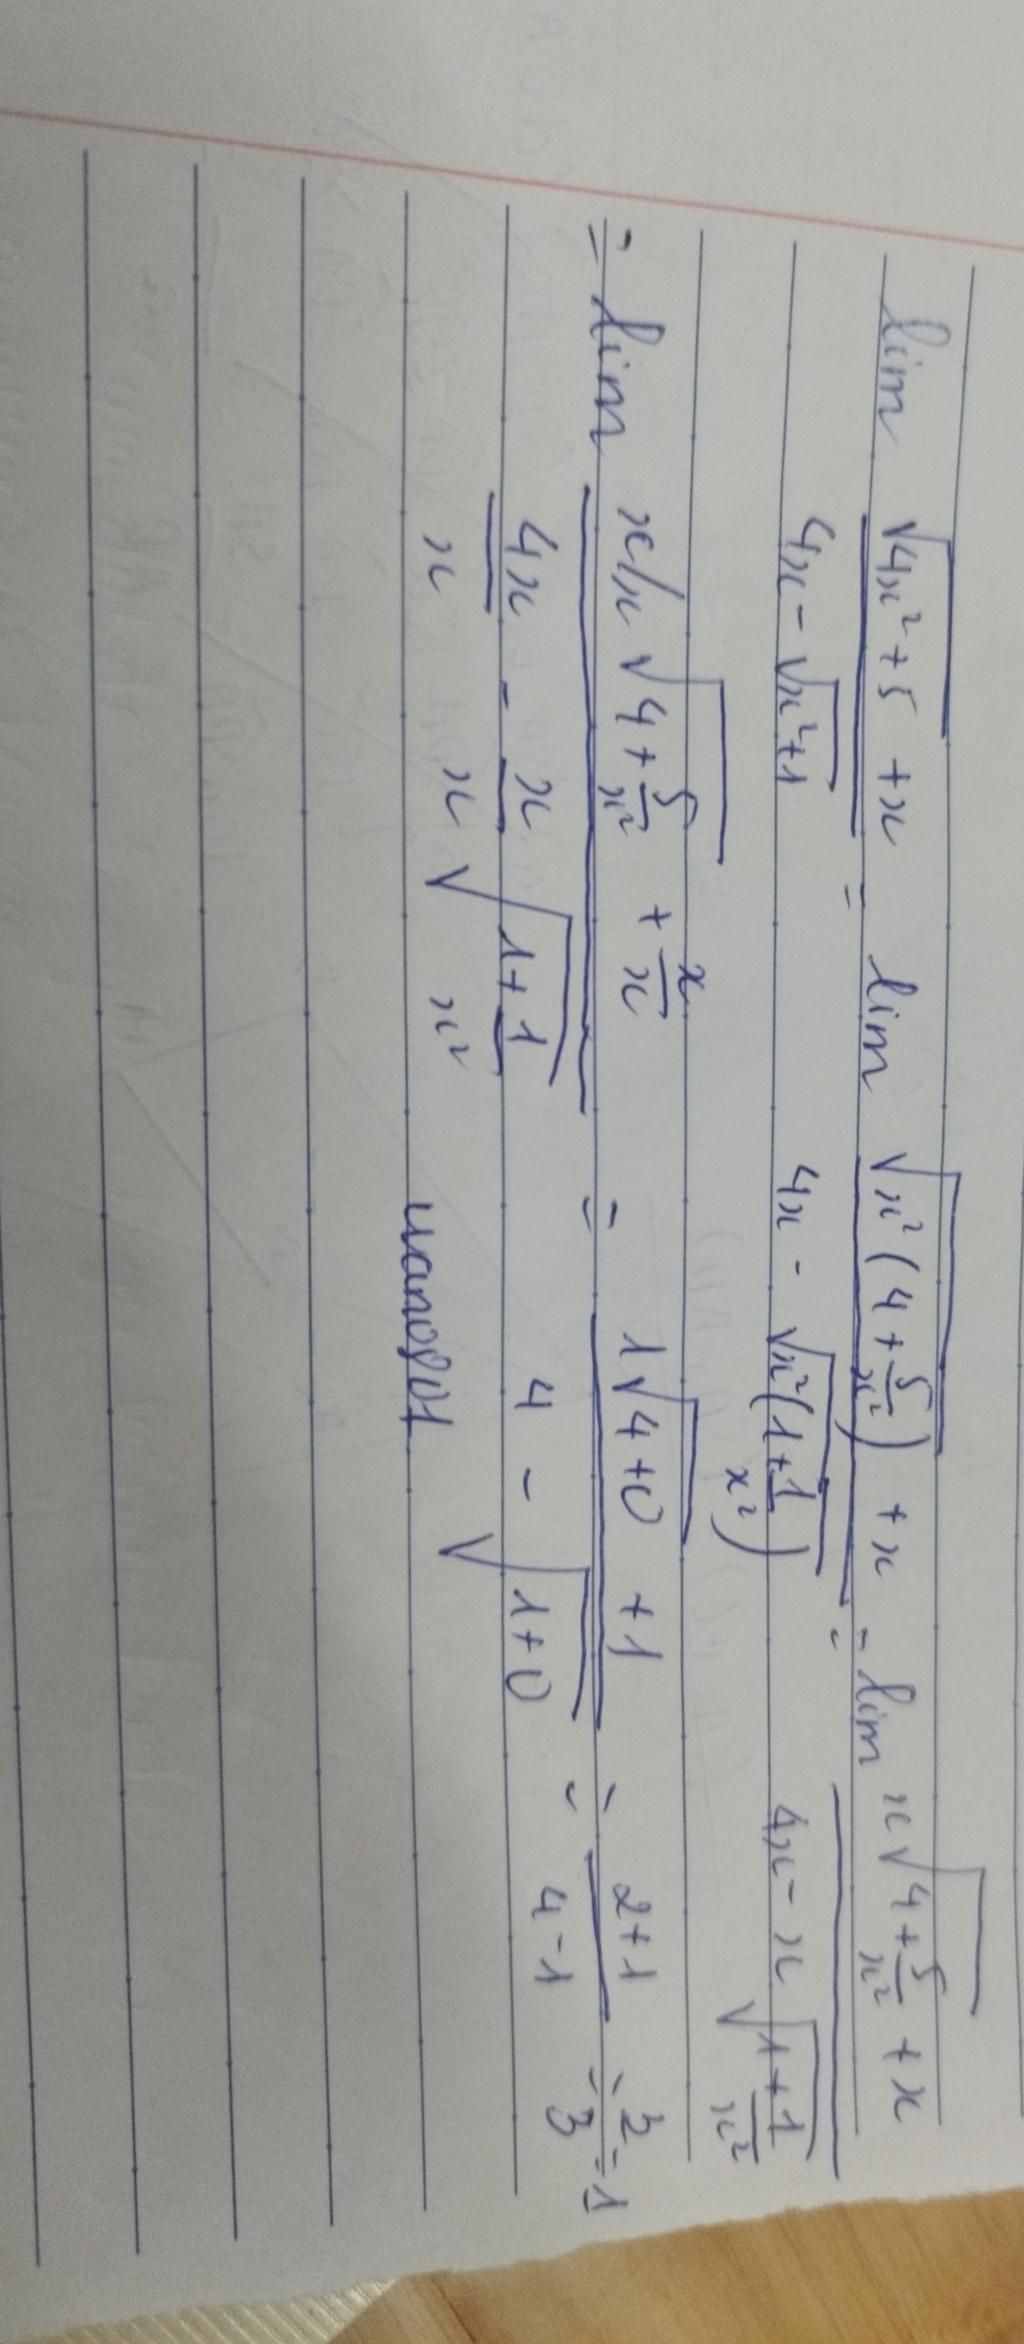 lim (√(4x²+5) + x)/(4x - √(x²+1)) = lim (√(x²(4+5/x²)) + x)/(4x - √(x²(1+1/x²))) = lim (x√(4+5/x²) + x)/(4x - x√(1+1/x²))
= lim (x/x √(4+5/x²) + x/x)/(4x/x - x/x √(1+1/x²)) = (1√(4+0) + 1)/(4 - √(1+0)) = (2+1)/(4-1) = 3/3 = 1